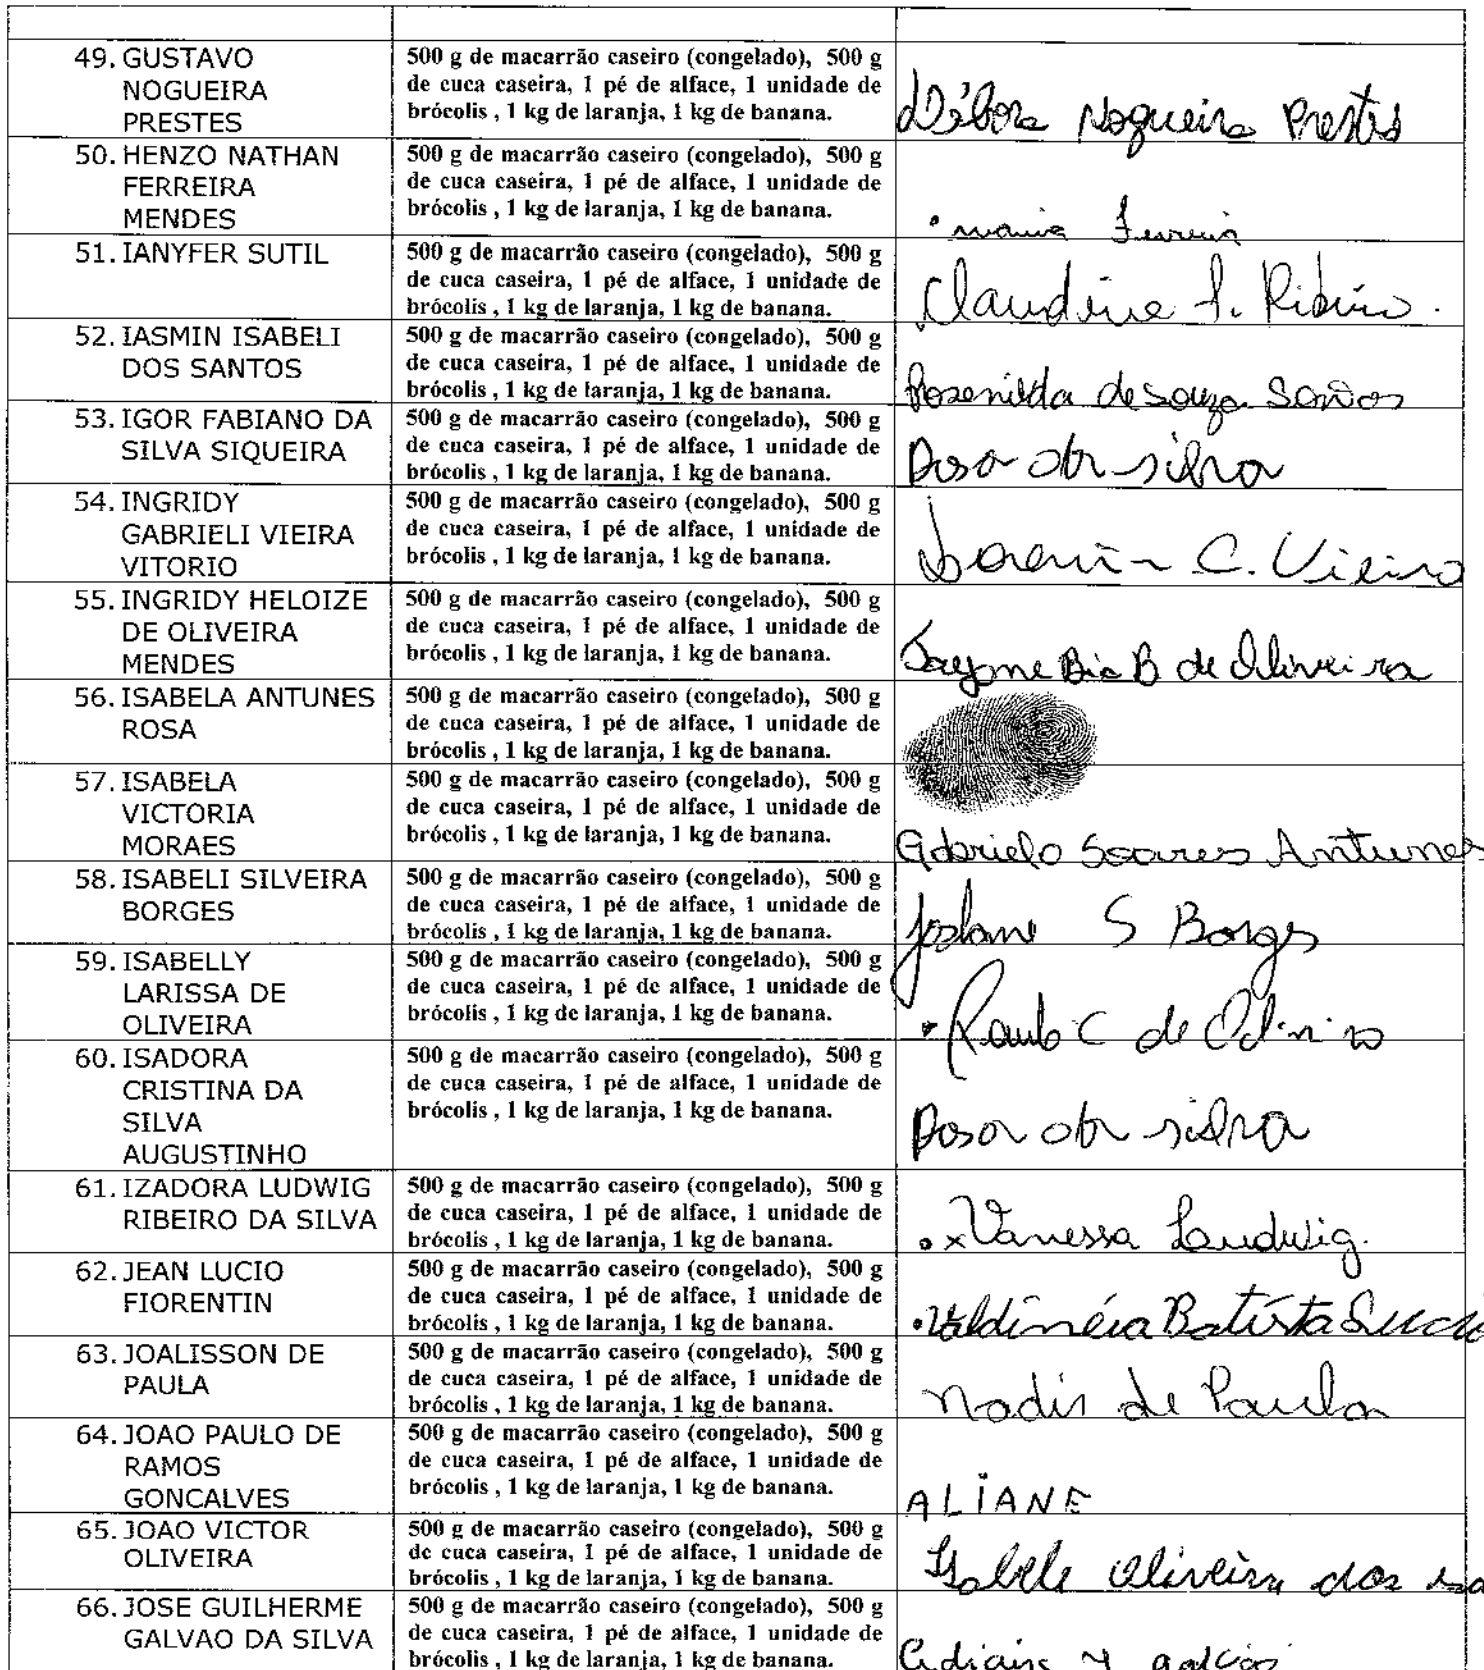 49. GUSTAVO
NOGUEIRA
PRESTES
500 g de macarrão caseiro (congelado), 500 g
de cuca caseira, 1 pé de alface, 1 unidade de
brócolis , 1 kg de laranja, 1 kg de banana.
Débora Nogueira Prestes
50. HENZO NATHAN
FERREIRA
MENDES
500 g de macarrão caseiro (congelado), 500 g
de cuca caseira, 1 pé de alface, 1 unidade de
brócolis , 1 kg de laranja, 1 kg de banana.
maria Ferreira
51. IANYFER SUTIL
500 g de macarrão caseiro (congelado), 500 g
de cuca caseira, 1 pé de alface, 1 unidade de
brócolis , 1 kg de laranja, 1 kg de banana.
Ribeiro.
52. IASMIN ISABELI
DOS SANTOS
500 g de macarrão caseiro (congelado), 500 g
de cuca caseira, 1 pé de alface, 1 unidade de
brócolis , 1 kg de laranja, 1 kg de banana.
Rosenilda de souza Santos
53. IGOR FABIANO DA
SILVA SIQUEIRA
500 g de macarrão caseiro (congelado), 500 g
de cuca caseira, 1 pé de alface, 1 unidade de
brócolis , 1 kg de laranja, 1 kg de banana.
Rosa da silva
54. INGRIDY
GABRIELI VIEIRA
VITORIO
500 g de macarrão caseiro (congelado), 500 g
de cuca caseira, 1 pé de alface, 1 unidade de
brócolis , 1 kg de laranja, 1 kg de banana.
C. Vieira
55. INGRIDY HELOIZE
DE OLIVEIRA
MENDES
500 g de macarrão caseiro (congelado), 500 g
de cuca caseira, 1 pé de alface, 1 unidade de
brócolis , 1 kg de laranja, 1 kg de banana.
B de Oliveira
56. ISABELA ANTUNES
ROSA
500 g de macarrão caseiro (congelado), 500 g
de cuca caseira, 1 pé de alface, 1 unidade de
brócolis , 1 kg de laranja, 1 kg de banana.
57. ISABELA
VICTORIA
MORAES
500 g de macarrão caseiro (congelado), 500 g
de cuca caseira, 1 pé de alface, 1 unidade de
brócolis , 1 kg de laranja, 1 kg de banana.
Gabriela Soares Antunes
58. ISABELI SILVEIRA
BORGES
500 g de macarrão caseiro (congelado), 500 g
de cuca caseira, 1 pé de alface, 1 unidade de
brócolis , 1 kg de laranja, 1 kg de banana.
S Borges
59. ISABELLY
LARISSA DE
OLIVEIRA
500 g de macarrão caseiro (congelado), 500 g
de cuca caseira, 1 pé de alface, 1 unidade de
brócolis , 1 kg de laranja, 1 kg de banana.
C de Oliveira
60. ISADORA
CRISTINA DA
SILVA
AUGUSTINHO
500 g de macarrão caseiro (congelado), 500 g
de cuca caseira, 1 pé de alface, 1 unidade de
brócolis , 1 kg de laranja, 1 kg de banana.
Rosa da silva
61. IZADORA LUDWIG
RIBEIRO DA SILVA
500 g de macarrão caseiro (congelado), 500 g
de cuca caseira, 1 pé de alface, 1 unidade de
brócolis , 1 kg de laranja, 1 kg de banana.
x Vanessa Ludwig.
62. JEAN LUCIO
FIORENTIN
500 g de macarrão caseiro (congelado), 500 g
de cuca caseira, 1 pé de alface, 1 unidade de
brócolis , 1 kg de laranja, 1 kg de banana.
Valdinéia Batista
63. JOALISSON DE
PAULA
500 g de macarrão caseiro (congelado), 500 g
de cuca caseira, 1 pé de alface, 1 unidade de
brócolis , 1 kg de laranja, 1 kg de banana.
Nadir de Paula
64. JOAO PAULO DE
RAMOS
GONCALVES
500 g de macarrão caseiro (congelado), 500 g
de cuca caseira, 1 pé de alface, 1 unidade de
brócolis , 1 kg de laranja, 1 kg de banana.
ALIANE
65. JOAO VICTOR
OLIVEIRA
500 g de macarrão caseiro (congelado), 500 g
de cuca caseira, 1 pé de alface, 1 unidade de
brócolis , 1 kg de laranja, 1 kg de banana.
oliveira dos
66. JOSE GUILHERME
GALVAO DA SILVA
500 g de macarrão caseiro (congelado), 500 g
de cuca caseira, 1 pé de alface, 1 unidade de
brócolis , 1 kg de laranja, 1 kg de banana.